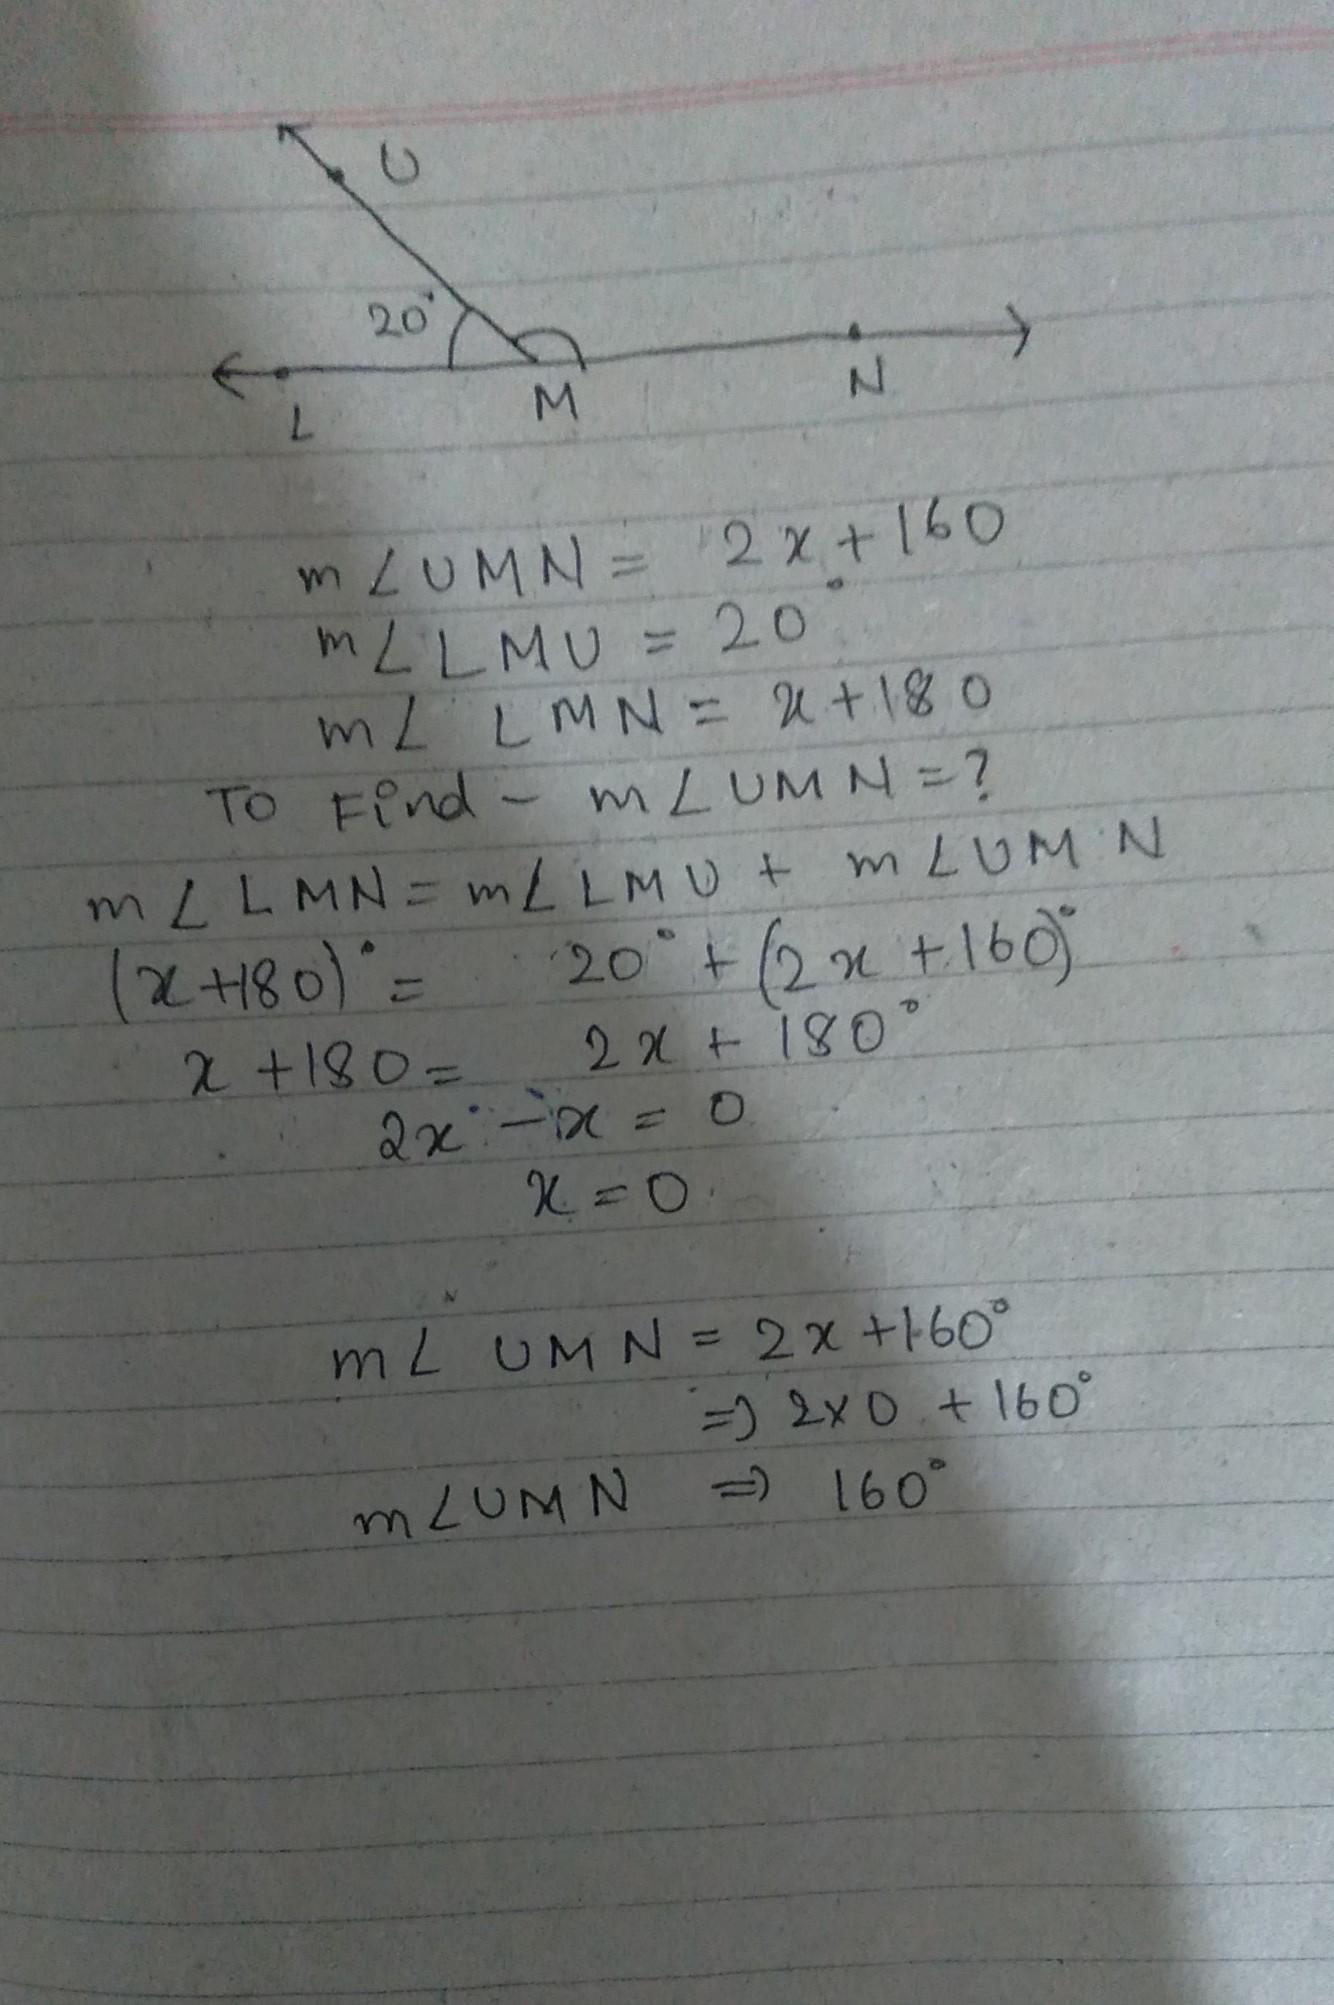 U
20°
L M N
m∠UMN = 2x+160
m∠LMU = 20°
m∠ LMN = x+180
To Find - m∠UMN=?
m∠LMN = m∠LMU + m∠UMN
(x+180)° = 20° + (2x+160)°
x+180 = 2x + 180°
2x - x = 0
x = 0
m∠ UMN = 2x+160°
⇒ 2×0 + 160°
m∠UMN ⇒ 160°